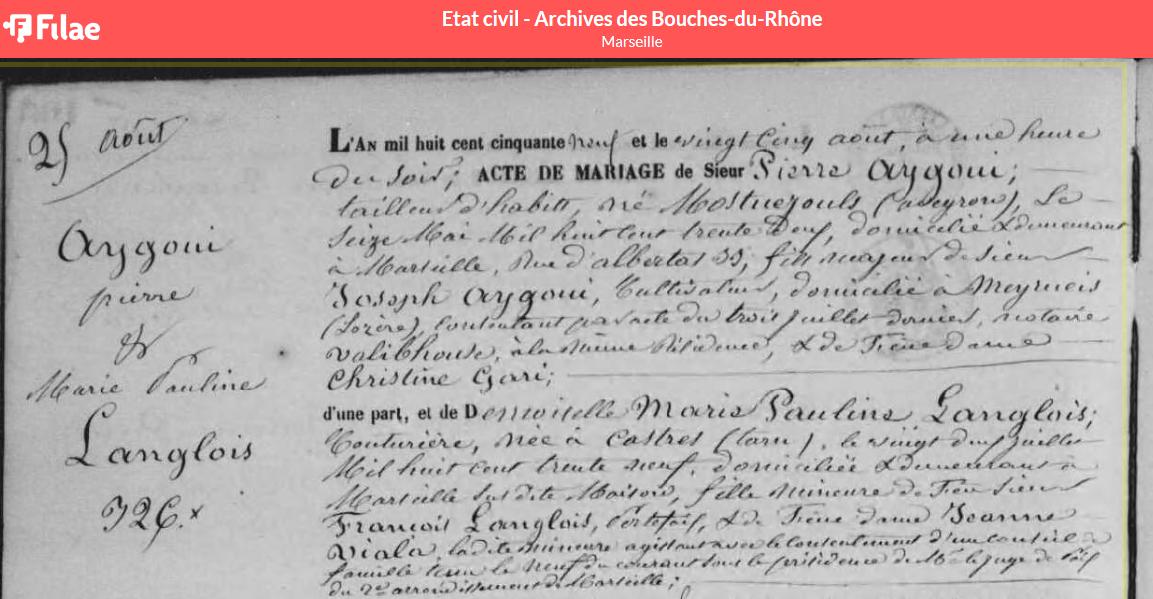 Filae
Etat civil - Archives des Bouches-du-Rhône
Marseille
25 août
Aygoui
pierre
&
Marie Pauline
Langlois
L'AN mil huit cent cinquante neuf et le vingt cinq août, à une heure
du soir; ACTE DE MARIAGE de Sieur Pierre Aygoui;
tailleur d'habits, né Mostuejouls (aveyron), Le
seize Mai Mil huit cent trente Deux, domicilié & demeurant
à Marseille, Rue d'albertas 33, fils majeur de sieur
Joseph Aygoui, Cultivateur, domicilié à Meyrueis
(Lozère), consentant par acte du trois juillet dernier, notaire
Valibhouse, à la même Résidence, & de Feue dame
Christine Gari;
d'une part, et de Demoiselle Marie Pauline Langlois;
Couturière, née à Castres (tarn), le vingt deux juillet
Mil huit cent trente neuf, domiciliée & demeurant à
Marseille susdite Maison, fille mineure de Feu sieur
François Langlois, Portefaix, & de Feue dame Jeanne
Viala, ladite mineure agissant avec le consentement d'un conseil de
famille tenu le neuf du courant sous la présidence de Mr le juge de Paix
du 2e arrondissement de Marseille;